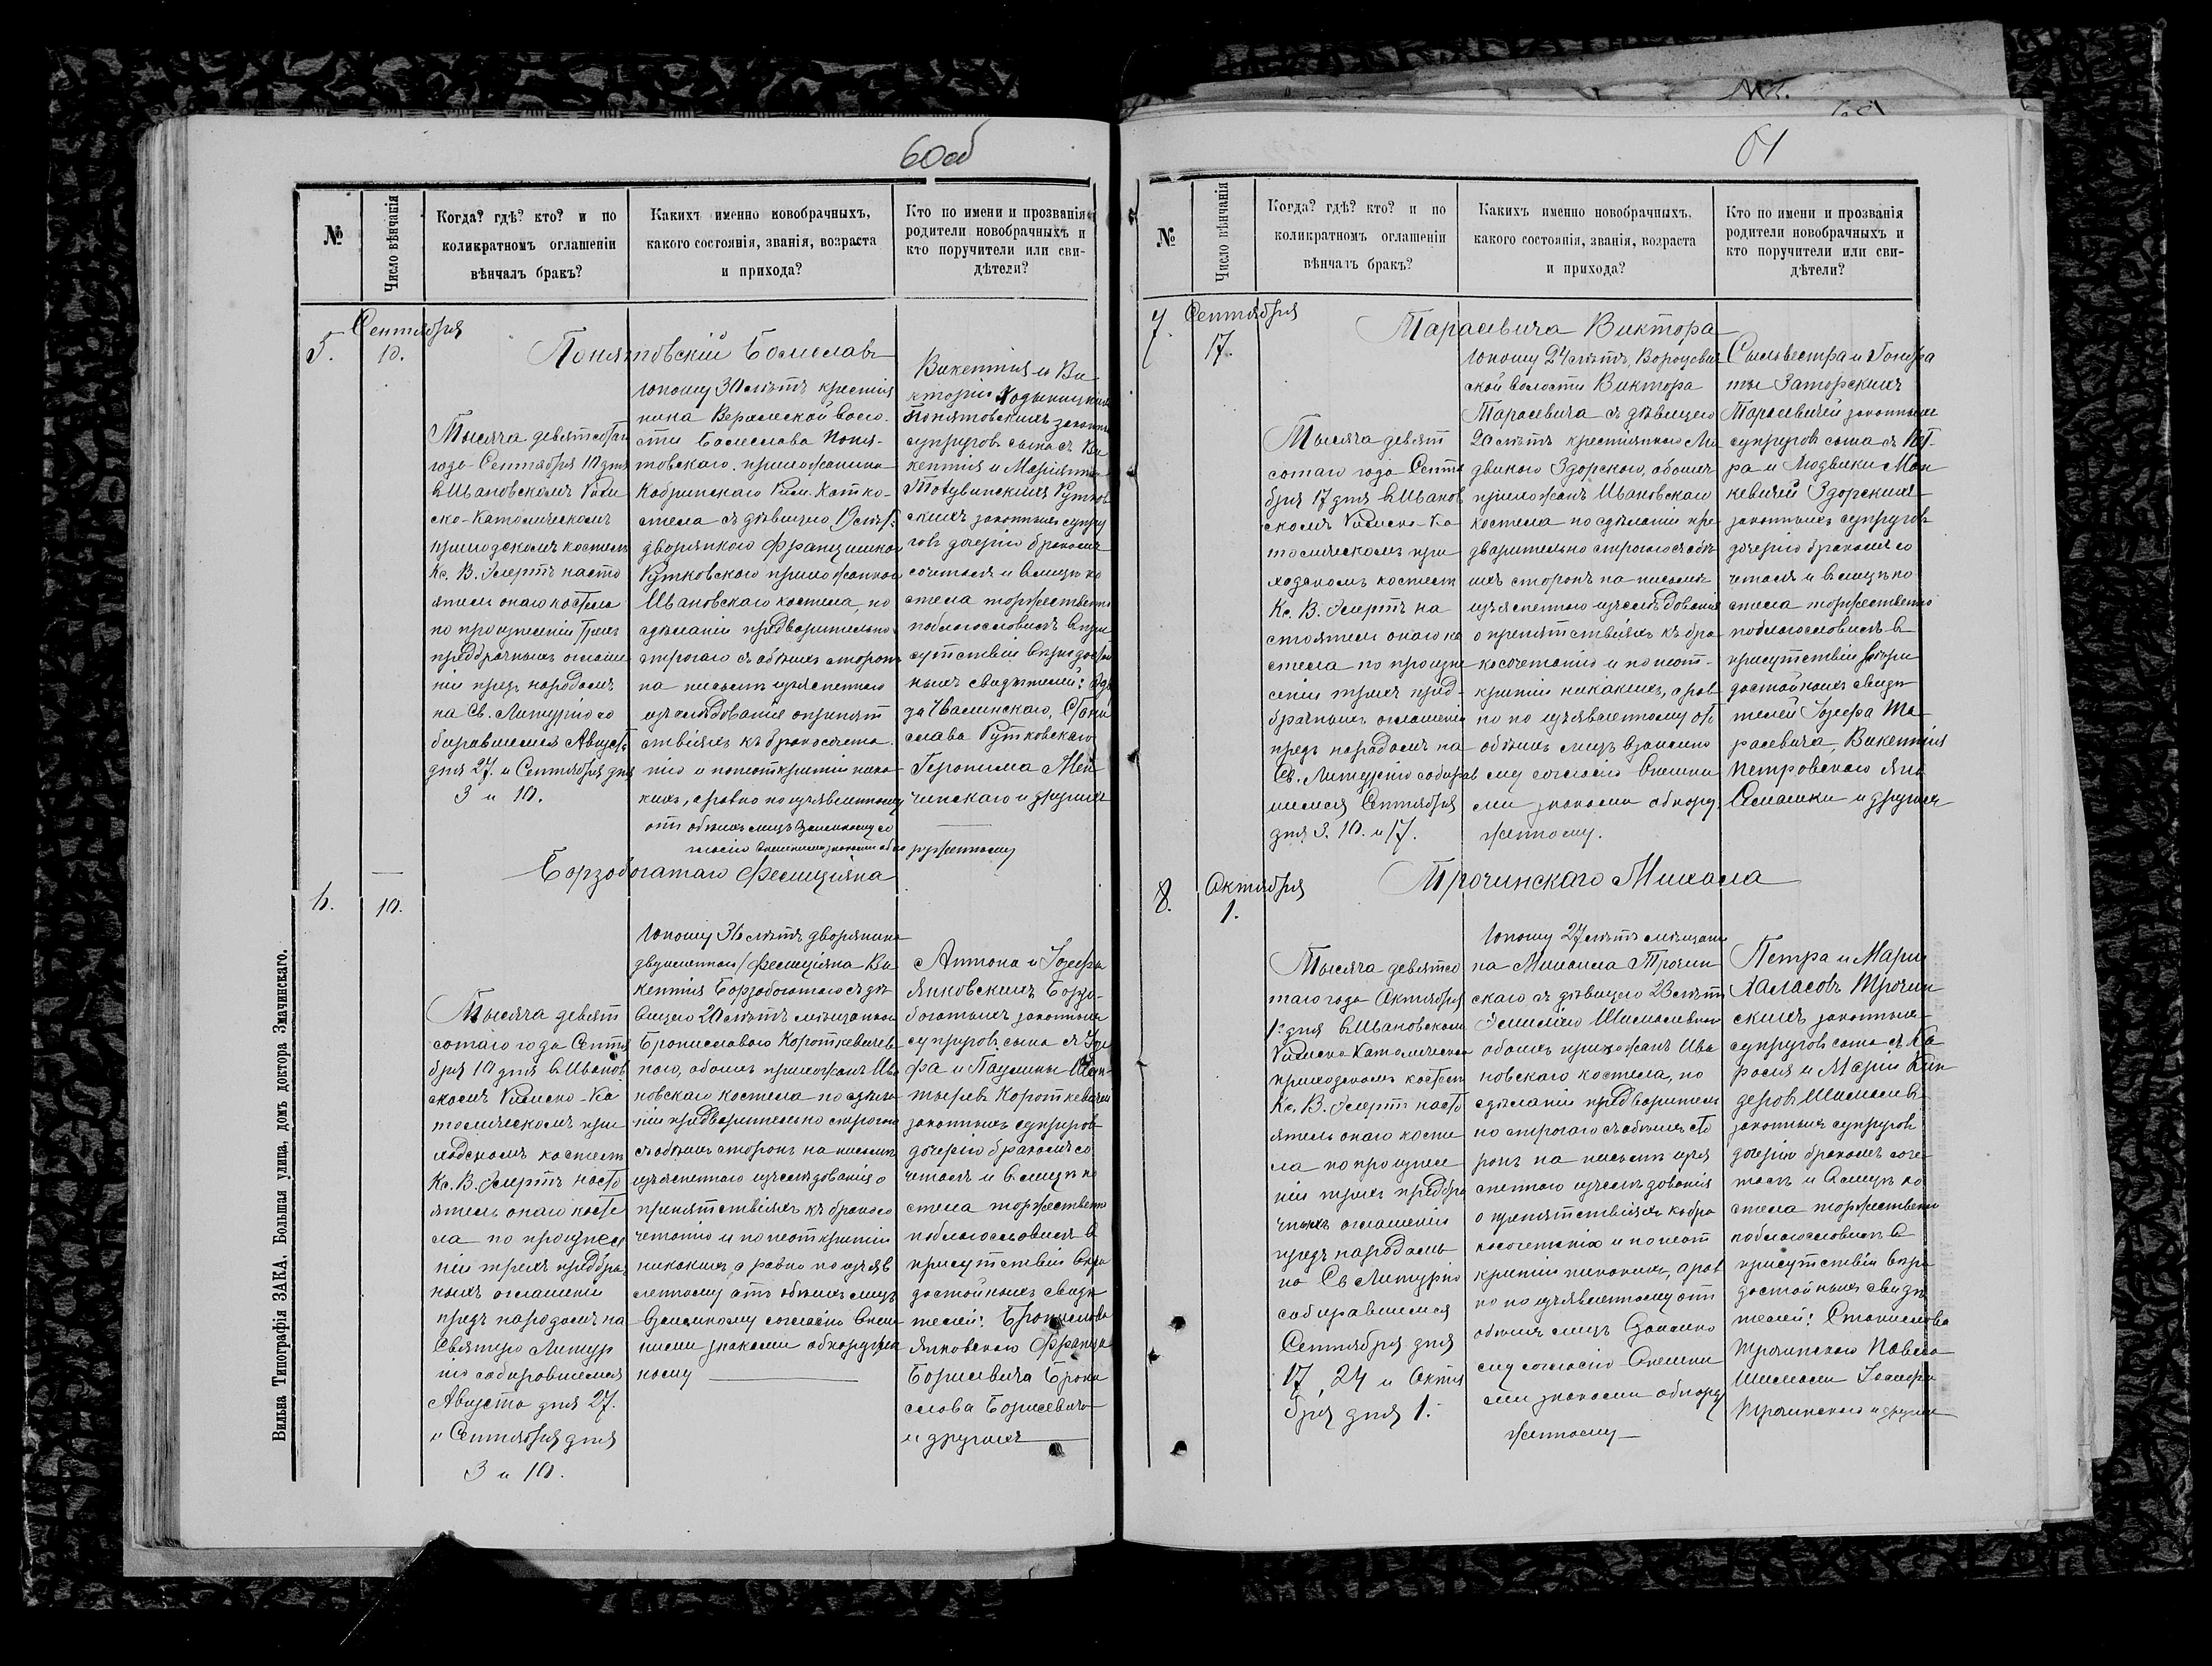 60об
№
Число вѣнчанія
Когда? гдѣ? кто? и по
коликратномъ оглашеніи
вѣнчалъ бракъ?
Какихъ именно новобрачныхъ,
какого состоянія, званія, возраста
и прихода?
Кто по имени и прозванія
родители новобрачныхъ и
кто поручители или сви-
дѣтели?
Сентября
5.
10.
Понятовскій Болеслав
Тысяча девятсотаго
года Сентября 10 дня
в Ивановскомъ Рим
ско-Католическомъ
приходскомъ костелѣ
Кс. В. насто
ятель онаго костела
по произнесеніи Трехъ
предбрачныхъ оглаше
ній предъ народомъ
на Св. Литургію со
биравшемся Августа
дня 27. и Сентября дня
3 и 10.
Юношу 30 лѣтъ крестья
нина воло-
сти Болеслава Поня-
товскаго, прихожанина
Кобринскаго Рим. Катко-
стела съ дѣвицею 19 лѣт.
дворянкою Францишкою
Рутковскою прихожанкою
Ивановскаго костела, по
сдѣланіи предварительно
строгаго съ обѣихъ сторонъ
на письмѣ изъясненнаго
изслѣдованія о препят
ствіяхъ къ бракосочета
нію и по неоткрытіи ника
кихъ, а равно по изъявленному
отъ обѣихъ лицъ взаимному со
гласію внешними знаками обна
руженному
Викентія и Ви
кторіи Ходыницких
Понятовскихъ законны
супругов сына съ Ви
кентія и Маріанны
Рутков
скихъ законныхъ супру
говъ дочерію бракомъ
сочеталъ и в лицѣ ко
стела торжественно
поблагословилъ в при
сутствіи вѣродостой
ныхъ свидѣтелей:
Стани
слава Рутковскаго
Геронима
чинскаго и другихъ
Борзобогатаго Фелиціяна
6.
10.
Тысяча девят
сотаго года Сентя
бря 10 дня в Иванов
скомъ Римско-Ка
толическомъ при
ходскомъ костелѣ
Кс. В. насто
ятель онаго косте
ла по произнесе
ніи трехъ предбрач
ныхъ оглашеній
предъ народомъ на
Святую Литур
гію собиравшемся
Августа дня 27.
и Сентября дня
3 и 10.
Юношу 36 лѣтъ дворянина
двуименнаго Фелиціяна Ви
кентія Борзобогатаго съ дѣ
вицею 20 лѣтъ мѣщанкою
Брониславою Короткевичев
ною, обоихъ прихожанъ Ива
новскаго костела по сдѣла
ніи предварительно строгаго
съ обѣихъ сторонъ на письмѣ
изъясненнаго изслѣдованія о
препятствіяхъ къ бракосо
четанію и по неоткрытіи
никакихъ, а равно по изъяв
ленному отъ обѣихъ лицъ
Взаимному согласію внеш
ними знаками обнаружен
ному
с Антона и Іозефы
Янковскихъ Борзо-
богатыхъ законныхъ
супругов сына съ Іозе
фа и Паулины
Короткевичей
законныхъ супругов
дочерію бракомъ со
четалъ и в лицѣ ко
стела торжественно
поблагословилъ в
присутствіи вѣро
достойныхъ свидѣ
телей: Бронислава
Янковскаго Франца
Борисевича Брони
слава Борисевича
и другихъ
Вильна Типографія ЗАКА. Большая улица, домъ доктора Змачинскаго.
61
№
Число вѣнчанія
Когда? гдѣ? кто? и по
коликратномъ оглашеніи
вѣнчалъ бракъ?
Какихъ именно новобрачныхъ,
какого состоянія, званія, возраста
и прихода?
Кто по имени и прозванія
родители новобрачныхъ и
кто поручители или сви-
дѣтели?
Сентября
7.
17.
Тарасевича Виктора
Тысяча девят
сотаго года Сентя
бря 17 дня в Иванов
скомъ Римско-Ка
толическомъ при
ходскомъ костелѣ
Кс. В. на
стоятель онаго ко
стела по произне
сеніи трехъ пред-
брачныхъ оглашеній
предъ народомъ на
Св. Литургію собирав
шемся Сентября
дня 3. 10. и 17.
Юношу 24 лѣтъ,
ской волости Виктора
Тарасевича съ дѣвицею
20 лѣтъ крестьянкою Лю
двикою Здорскою, обоихъ
прихожанъ Ивановскаго
костела по сдѣланіи пре
дварительно строгаго съ обѣ
ихъ сторонъ на письмѣ
изъясненнаго изслѣдованія
о препятствіяхъ къ бра
косочетанію и по неот-
крытіи никакихъ, а рав
но по изъявленному отъ
обѣихъ лицъ взаимно
му согласію внешни
ми знаками обнару
женному.
Сильвестра и Гонора
ты Заторскихъ
Тарасевичей законныхъ
супругов сына съ Пет-
ра и Людвики Мон
кевичей Здорскихъ
законныхъ супругов
дочерію бракомъ со
четалъ и в лицѣ ко
стела торжественно
поблагословилъ в
присутствіи вѣро
достойныхъ свидѣ
телей Іозефа Та
расевича, Викентія
Петровскаго Яна
и другихъ
Октября
8.
1.
Трочинскаго Михала
Тысяча девятсо
таго года Октября
1 дня в Ивановском
Римско Католическом
приходскомъ костелѣ
Кс. В. насто
ятель онаго косте
ла по произнесе
ніи трехъ предбра
чныхъ оглашеній
предъ народомъ
на Св Литургію
собиравшемся
Сентября дня
17, 24 и Октя
бря дня 1.
Юношу 27 лѣтъ мѣщани
на Михаила Трочин
скаго съ дѣвицею 23 лѣтъ
Эмилію
обоихъ прихожанъ Ива
новскаго костела, по
сдѣланіи предварител
но строгаго съ обѣихъ сто
ронъ на письмѣ изъя
сненнаго изслѣдованія
о препятствіяхъ к бра
косочетанію и по неот
крытіи никакихъ, а рав
но по изъявленному отъ
обѣихъ лицъ взаимно
му согласію внешни
ми знаками обнару
женному
Петра и Маріи
Трочин
скихъ законныхъ
супругов сына съ Ка
роля и Маріи

законныхъ супругов
дочерію бракомъ соче
талъ и в лицѣ ко
стела торжественно
поблагословилъ в
присутствіи вѣро
достойныхъ свидѣ
телей: Станислава
Трочинскаго Павла
Іозефа
Трочинскаго и других